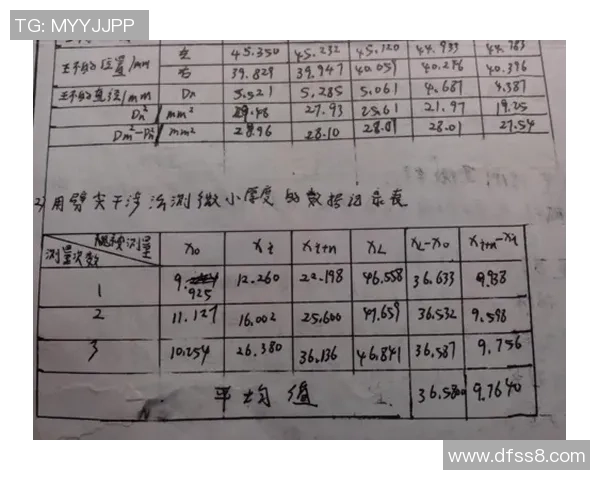 TG: MYYJJPP
左 45.350 45.232 45.120 44.933 44.783
环的位置/mm
右 39.829 39.947 40.059 40.246 40.396
环的直径/mm Dn 5.521 5.285 5.061 4.687 4.387
Dn² / mm² 29.48 27.93 25.61 21.97 19.25
Dm²-Dn² / mm² 28.96 28.10 28.01 28.01 27.54
2) 用劈尖干涉法测微小厚度的数据记录表
测量次数 测量 X₀ Xt Xt+n XL XL-X₀ Xt+n-Xt
1 9.925 12.260 22.198 46.558 36.633 9.938
2 11.127 16.002 25.600 47.659 36.532 9.598
3 10.254 26.380 36.136 46.841 36.587 9.756
平均值 36.5800 9.7640
www.dfss8.com